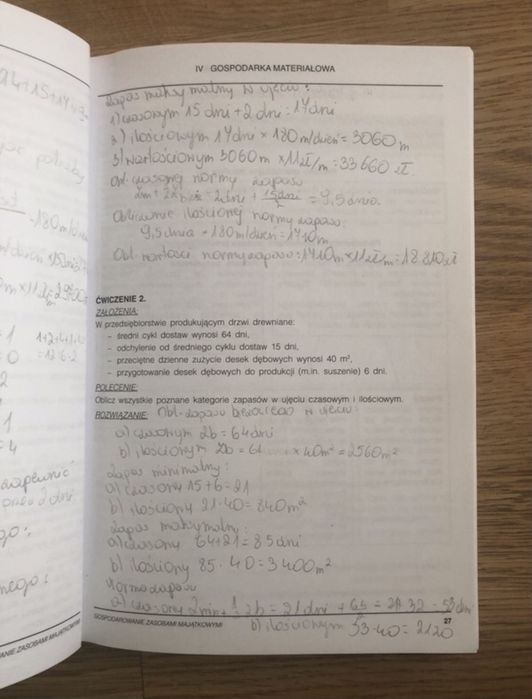 a4+15+14=3
180m/dzień
=1
1+2+4+1+4
=0
=12:6=2
2
1
=4
zapewnić
2 dni
ANIE ZASOBAMI MAJĄTKOWYMI
IV GOSPODARKA MATERIAŁOWA
Zapas maksymalny w ujęciu:
1) czasowym 15 dni + 2 dni = 17 dni
2) ilościowym 17 dni × 180 m/dzień = 3060 m
3) wartościowym 3060 m × 11 zł/m = 33 660 zł
Obl. czasowej normy zapasu
Zm + Zb = 2 dni + 15 dni/2 = 9,5 dnia
Obliczenie ilościowej normy zapasu:
9,5 dnia × 180 m/dzień = 1710m
Obl wartości normy zapasu = 1710m × 11 zł/m = 18 810 zł
ĆWICZENIE 2.
ZAŁOŻENIA:
W przedsiębiorstwie produkującym drzwi drewniane:
– średni cykl dostaw wynosi 64 dni,
– odchylenie od średniego cyklu dostaw 15 dni,
– przeciętne dzienne zużycie desek dębowych wynosi 40 m²,
– przygotowanie desek dębowych do produkcji (m.in. suszenie) 6 dni.
POLECENIE:
Oblicz wszystkie poznane kategorie zapasów w ujęciu czasowym i ilościowym.
ROZWIĄZANIE: Obl. zapasu bieżącego w ujęciu:
a) czasowym Zb = 64 dni
b) ilościowym Zb = 64 × 40m² = 2560 m²
Zapas minimalny:
a) czasowy 15+6 = 21
b) ilościowy 21·40 = 840 m²
Zapas maksymalny:
a) czasowy 64+21 = 85 dni
b) ilościowy 85·40 = 3400 m²
Norma zapasu
a) czasowy Zmin + ½ Zb = 21 dni + = 21 32 = 53 dni
GOSPODAROWANIE ZASOBAMI MAJĄTKOWYMI
27
b) ilościowym 53·40 = 2120